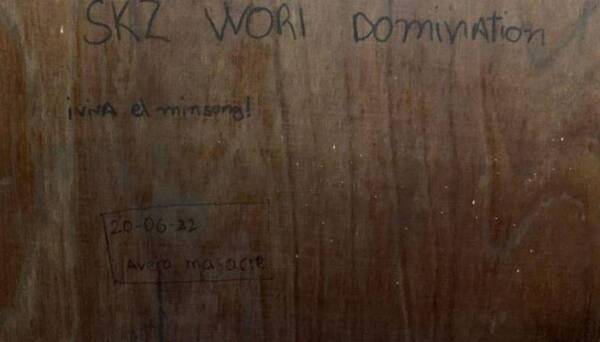 SKZ WORl DOMiNATion
¡ViVA el minsong!
20-06-22
masacre